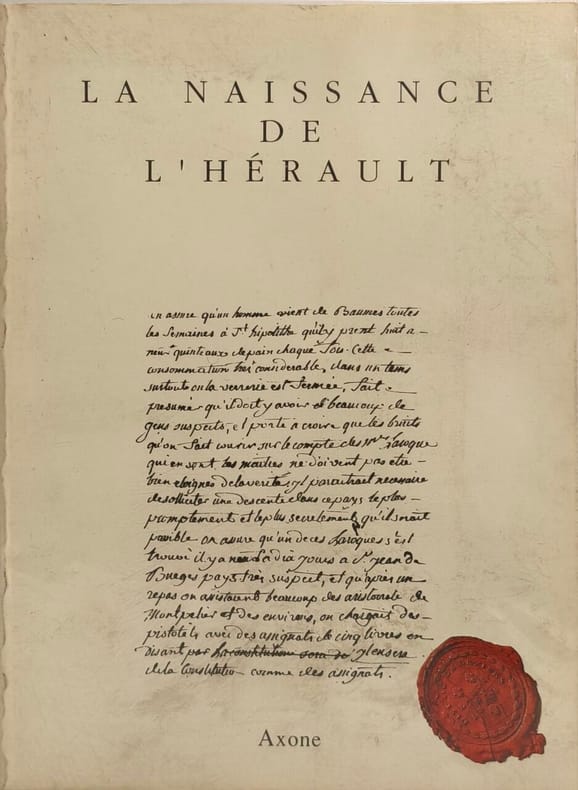 LA NAISSANCE
DE
L'HÉRAULT
on assure qu'un homme vient de Baumes toutes
les Semaines à St hipolithe qu'il y prent huit a
neuf quinteaux de pain chaque fois. Cette
consommation très considerable, dans un tems
surtout ou la verrerie est fermée, fait
presumer qu'il doit y avoir de beaucoup de
gens suspects, et porte à croire que les bruits
qu'on fait courir sur le compte des Mrs Laroque
qui en sont les maitres ne doivent pas etre
bien eloignés de la verité; il paraitrait necessaire
de solliciter une descente dans ce pays le plus
promptement et le plus secretement qu'il serait
possible on assure qu'un de ces Laroques s'est
trouvé il y a neuf à dix jours a St jean de
Bueges pays très suspect, et qu'après un
repas ou assistaient beaucoup des aristocrate de
Montpelier et des environs, on chargait des
pistolets avec des assignats de cinq livres en
disant par la constitution sera de
de la Constitution comme des assignats.
Axone